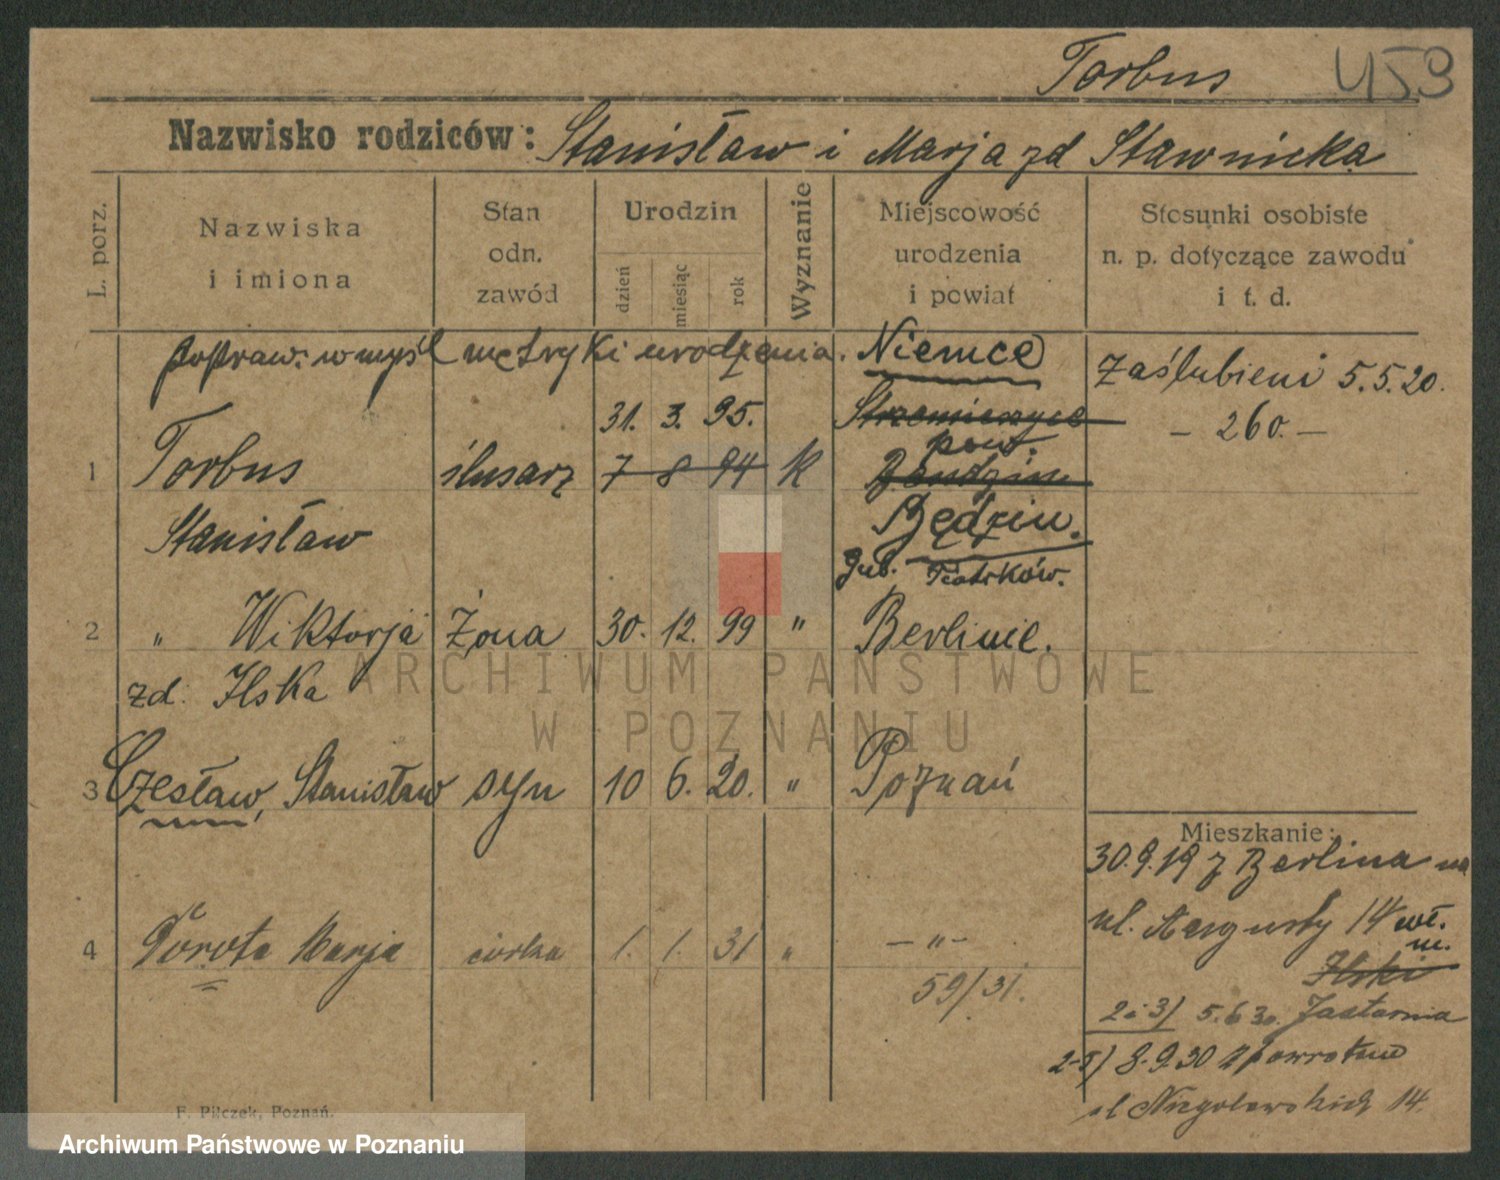 Torbus 459
Nazwisko rodziców: Stanisław i Marja zd Stawnicka
L. porz.
Nazwiska
i imiona
Stan
odn.
zawód
Urodzin
dzień
miesiąc
rok
Wyznanie
Miejscowość
urodzenia
i powiat
Stosunki osobiste
n. p. dotyczące zawodu
i t. d.
popraw. w myśl metryki urodzenia. Niemce
Zaślubieni 5.5.20.
– 260. –
31. 3. 95. Strzemieszyce
pow.
1 Torbus ślusarz 7 8 94 k Bendzin
Stanisław Będzin.
gub. Piotrków.
2 " Wiktorja żona 30. 12. 99 " Berlinie.
zd. Ilska
3 Czesław, Stanisław syn 10 6. 20. " Poznań
4 Dorota Marja córka 1. 1. 31 " – " –
59/31.
Mieszkanie:
30.9.19 z Berlina na
ul. Augusty 14 wł.
m.
Ilski
2 i 3/ 5.6.30. Jastarnia
8.9.30 z powrotem
ul Niegolewskich 14.
F. Pilczek, Poznań.
ARCHIWUM PAŃSTWOWE
W POZNANIU
Archiwum Państwowe w Poznaniu